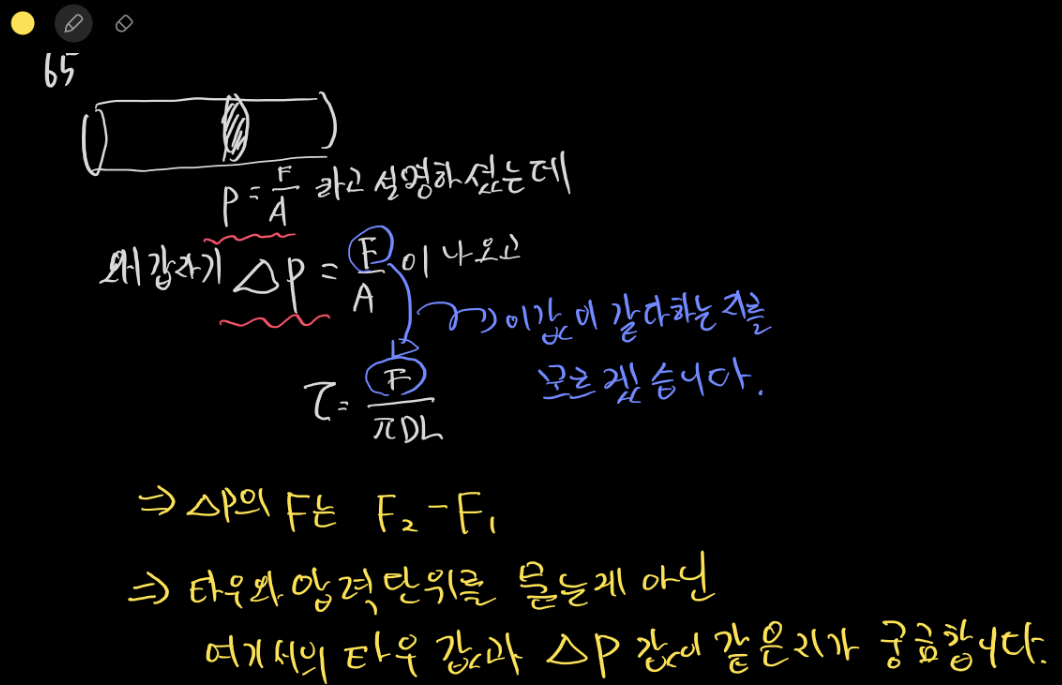 65
P = F/A 라고 설명하셨는데
왜 갑자기 △P = F/A 이 나오고
이 값이 같다하는지를
모르겠습니다.
τ = F/πDL
⇒ △P의 F는 F₂ - F₁
⇒ 타우와 압력 단위를 묻는게 아닌
여기서의 타우 값과 △P 값이 같은지가 궁금합니다.